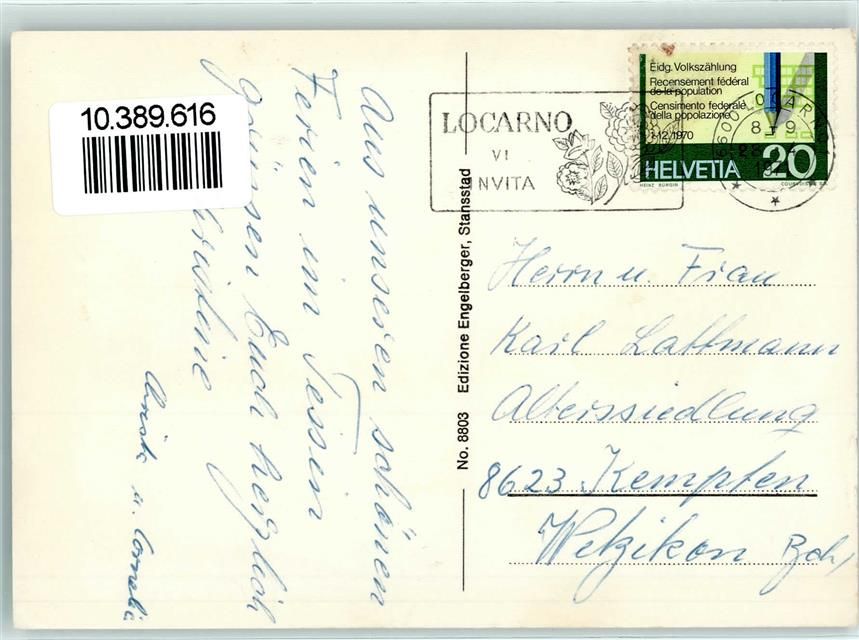 10.389.616
Aus unseren schönen
Ferien im Tessin
grüssen Euch herzlich
Christa u. Cornelia
LOCARNO
VI
INVITA
Eidg. Volkszählung
Recensement fédéral
de la population
Censimento federale
della popolazione
1.12.1970
HELVETIA 20
HEINZ BÜRGIN COURVOISIER S.A.
6600 LOCARNO
No. 8803 Edizione Engelberger, Stansstad
Herrn u. Frau
Karl Lattmann
Alterssiedlung
8623 Kempten
Wetzikon Zch